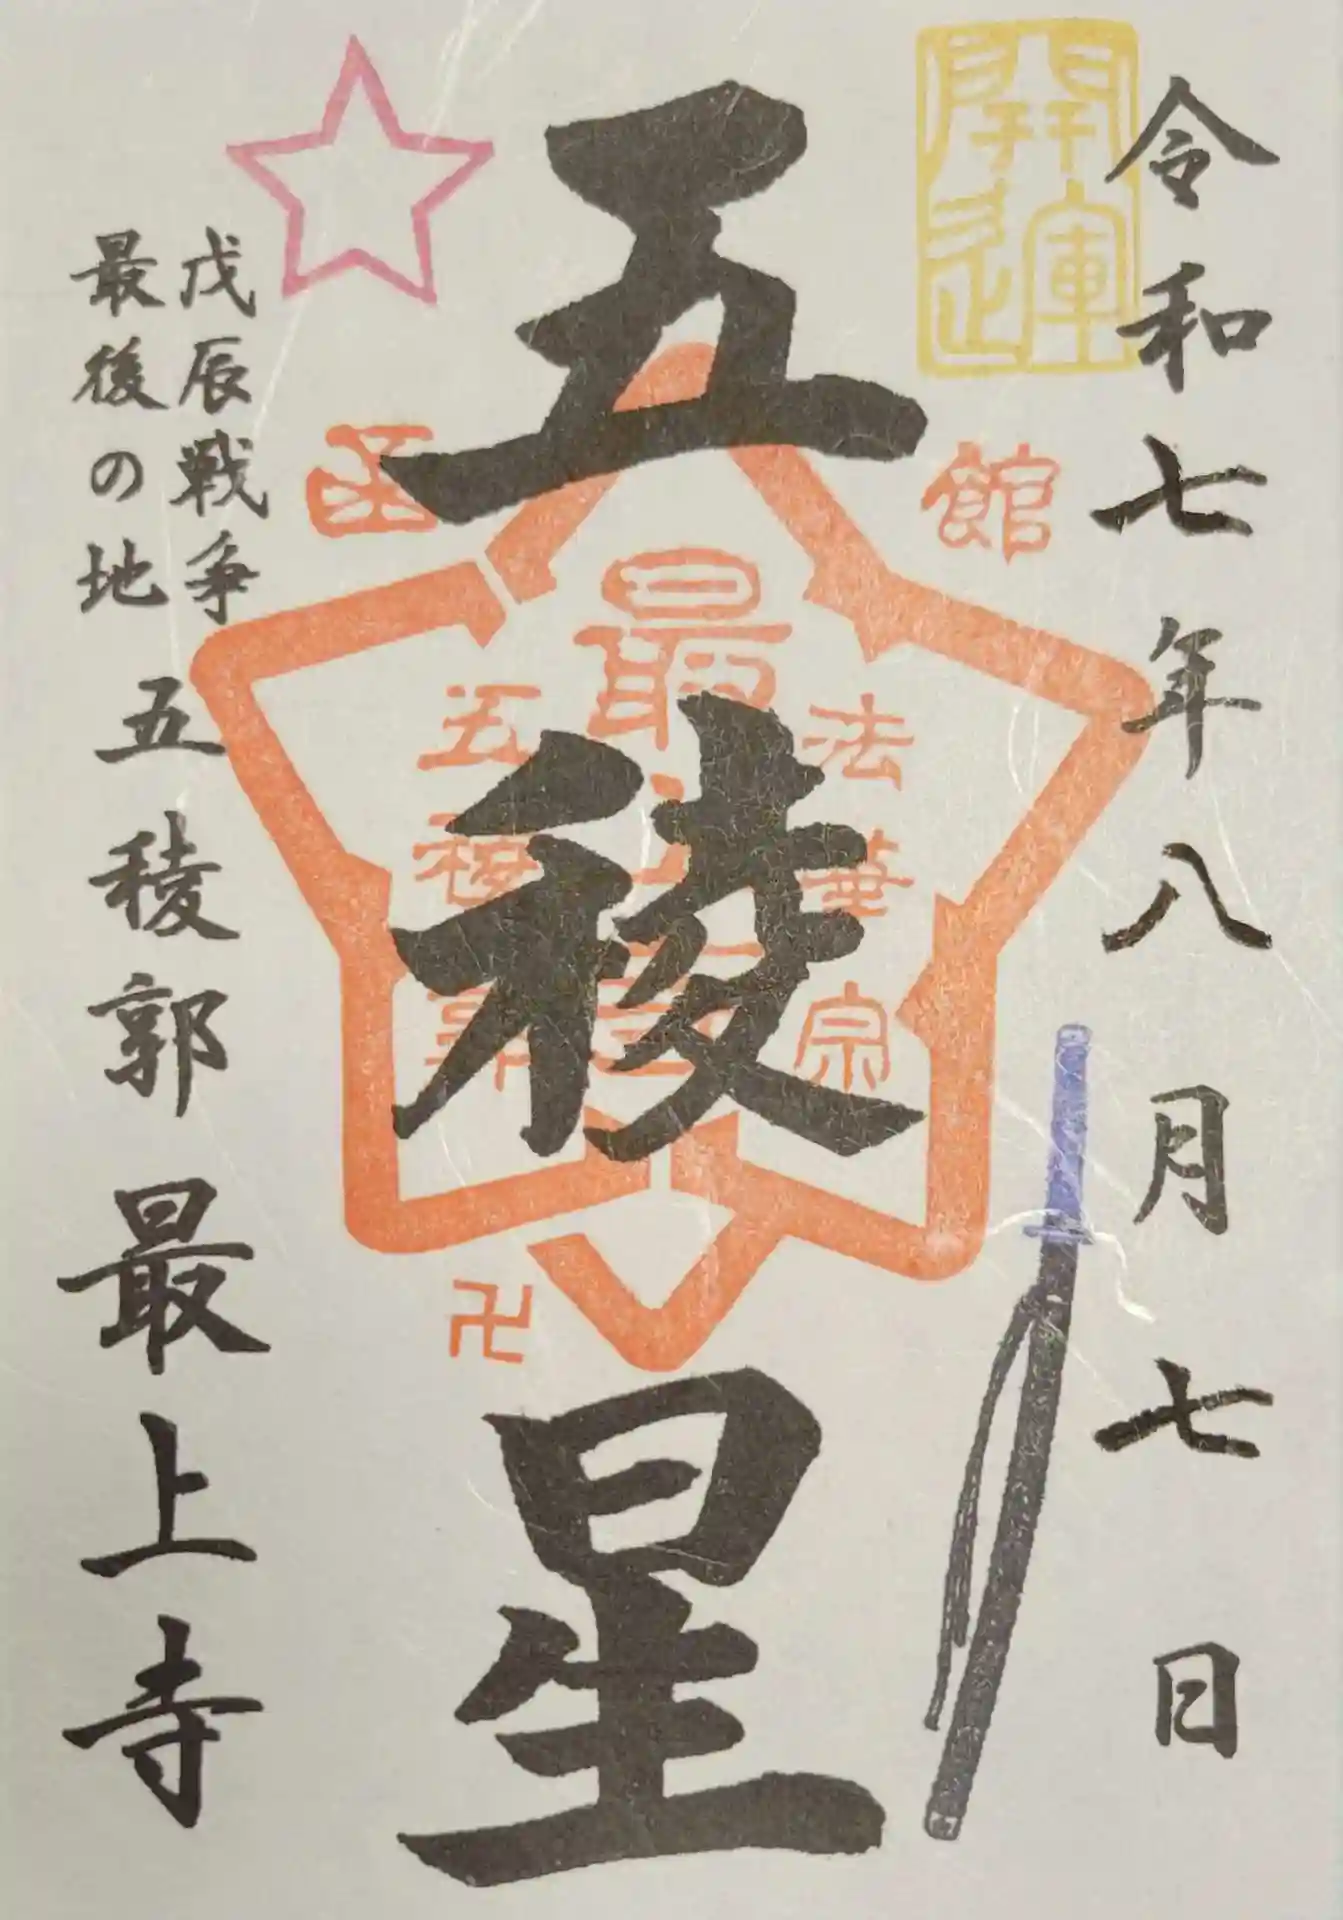 令和七年八月七日
開運
五稜星
函館
法華宗
最上寺
五稜郭
卍
戊辰戦争
最後の地
五稜郭 最上寺